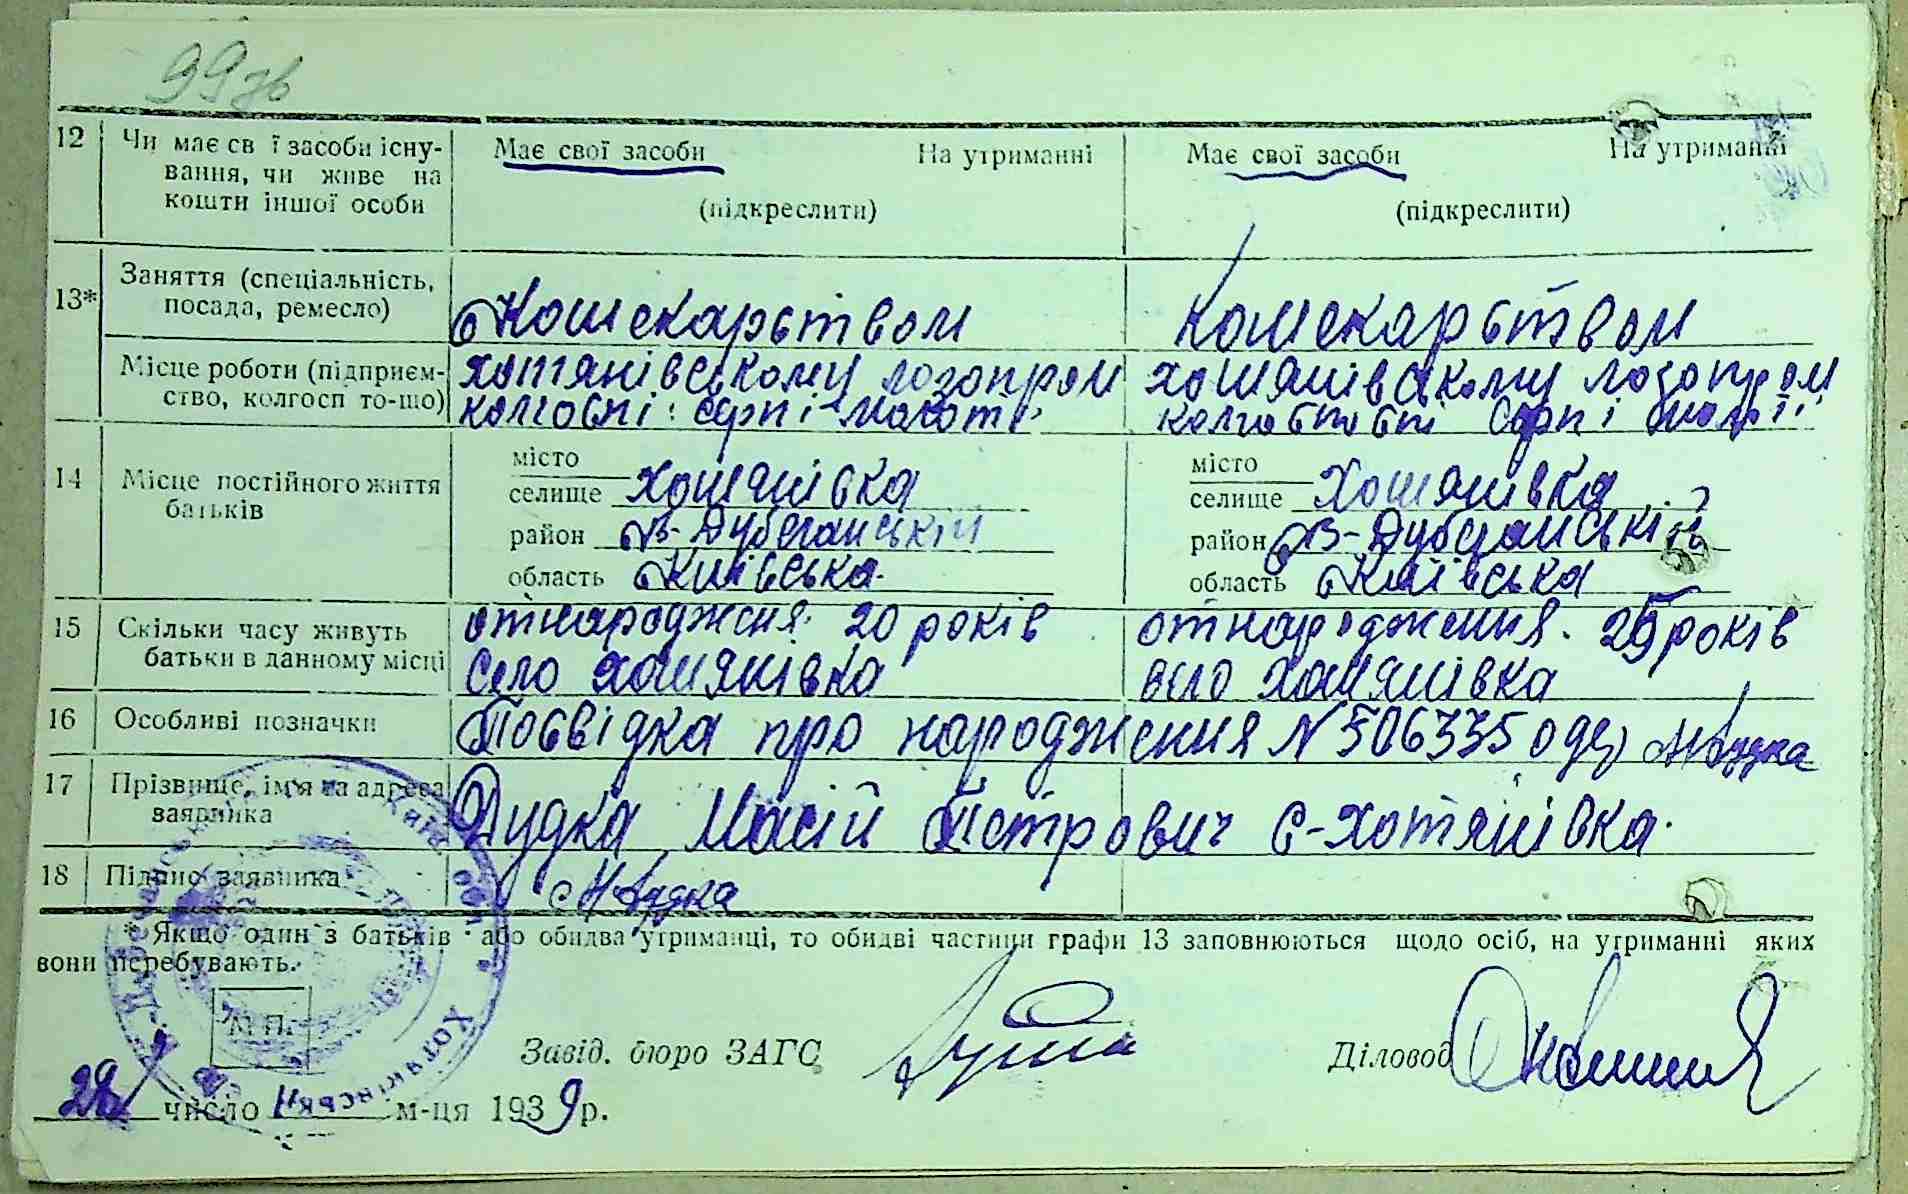 99зв
12 Чи має св ї засоби існу- Має свої засоби На утриманні Має свої засоби На утриманні
вання, чи живе на
кошти іншої особи (підкреслити) (підкреслити)
13* Заняття (спеціальність,
посада, ремесло) Кошекарством Кошекарством
Місце роботи (підприєм- хотянівському лозопром хотянівському лозопром
ство, колгосп то-що) колгоспі Серп і молот Серп і молот
14 Місце постійного життя
батьків
місто місто
селище Хотянівка селище Хотянівка
район В-Дубечанський район В-Дубечанський
область Київська область Київська
15 Скільки часу живуть отнародження 20 років отнародження. 25 років
батьки в данному місці село хотянівка село хотянівка
16 Особливі позначки Посвідка про народження N 506335 одер МДудка
17 Прізвище, ім'я та адреса
заявника Дудка Масій Петрович с-хотянівка.
18 Підпис заявника МДудка
* Якщо один з батьків або обидва утриманці, то обидві частини графи 13 заповнюються щодо осіб, на утриманні яких
вони перебувають.
М. П.
Завід. бюро ЗАГС Діловод
28 число 11 м-ця 1939 р.